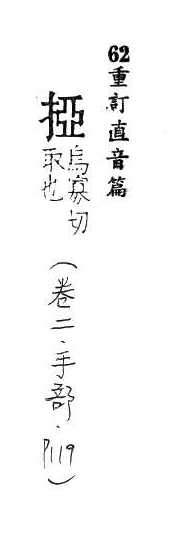 62重訂直音篇
掗烏家切
取也
(卷二.手部.P119)